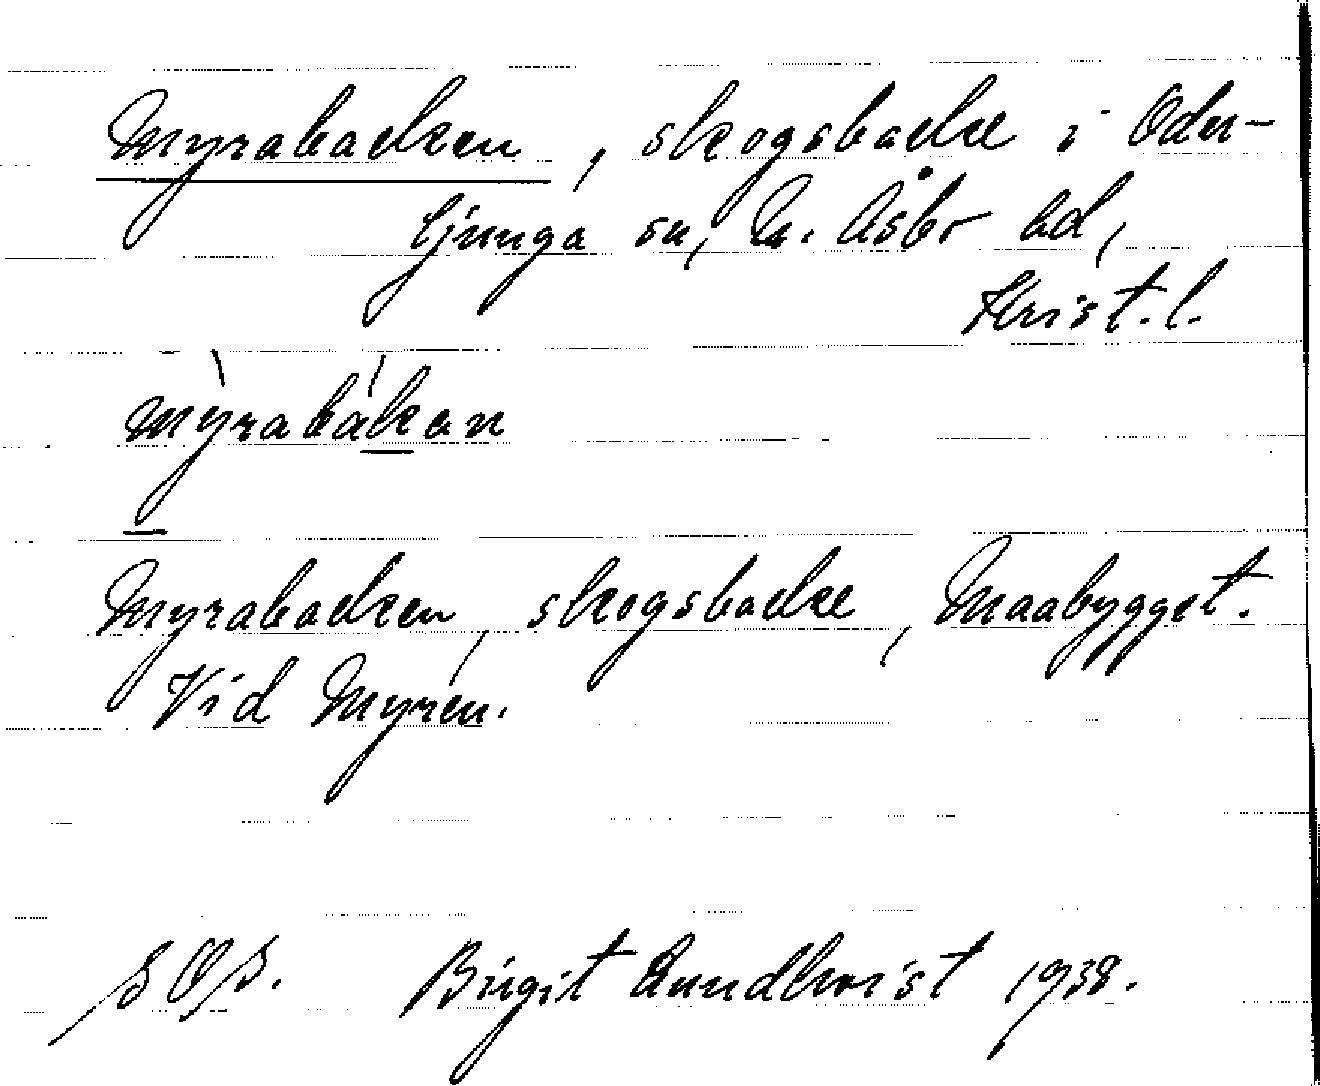 Myrabacken, skogsbacke i Öder-
ljunga sn, N. Åsbo hd,
Krist. l.
mỳrabákan
Myrabacken, skogsbacke, Maabygget.
Vid Myren.
SOS. Birgit Lundkvist 1938.